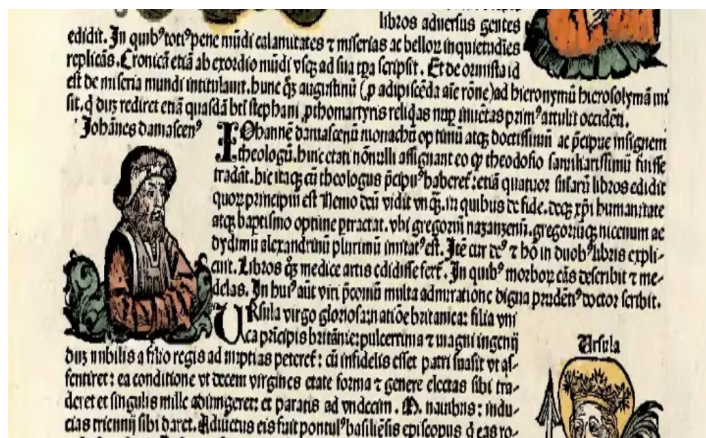 libros adversus gentes
edidit. In quibꝰ totiꝰ pene mũdi calamitates ⁊ miserias ac belloꝝ inquietudĩes
replicãs. Cronicã etiã ab exordio mũdi vsqꝫ ad sua tꝑa scripsit. Et de ormista id
est de miseria mundi intitulauit. hunc qꝫ augustinũ (ꝓ adipiscẽda aĩe rõne) ad hieronymũ hierosolymã mi
sit. q̃ duꝫ rediret etiã quasdã bt̃i stephani ꝓthomartyris reliq̃as nuꝑ inuẽtas primꝰ attulit occidẽti.
Johãnes damascenꝰ
IOhannẽ damascenũ monachũ optimũ atqꝫ doctissimũ ac p̃cipue insignem
theologũ. hũic etati nõnulli assignant eo ꝙ theodosio familiarissimũ fuisse
tradãt. hic itaqꝫ cũ theologus p̃cipuꝰ haberet̃: etiã quatuor sñiaꝝ libros edidit
quoꝝ principiũ est Nemo deũ vidit vnqꝫ. in quibus de fide. deqꝫ xp̃i humanitate
atqꝫ baptismo optime ꝑtractat. vbi gregoriũ nazanzenũ. gregoriũqꝫ nicenum ac
dydimũ alexandrinũ plurimũ imitatꝰ est. Itẽ cur deꝰ ⁊ hõ in duobꝰ libris expli-
cuit. Libros qꝫ medice artis edidisse fert̃. In quibꝰ morboꝝ cãs describit ⁊ me-
delas. In huiꝰ aũt viri p̃conũ multa admiratione digna prudẽtiꝰ doctor scribit.
URsula virgo gloriosa natiõe britanica: filia vni
ca prĩcipis britãnie: pulcerrima ⁊ magni ingenij
Ursula
duꝫ nubilis a filio regis ad nuptias peteret̃: cũ infidelis esset patri suasit vt as-
sentiret: ea conditione vt decem virgines etate forma ⁊ genere electas sibi tra-
deret et singulis mille adiungeret: et paratis ad vndecim. M. nauibus: indu-
cias triennij sibi daret. Adiuctus eis fuit pontulꝰ basiliẽsis episcopus q̃ eas ro-